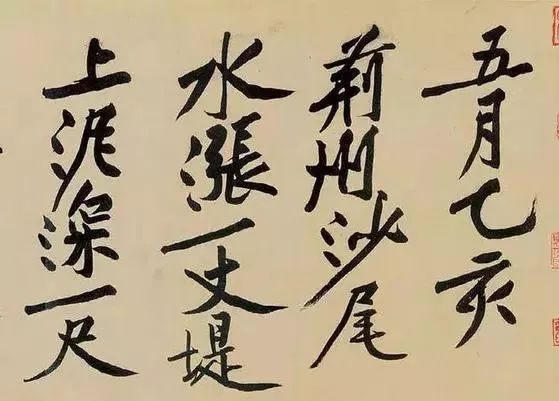 五月乙亥
荆州沙尾
水漲一丈堤
上泥深一尺